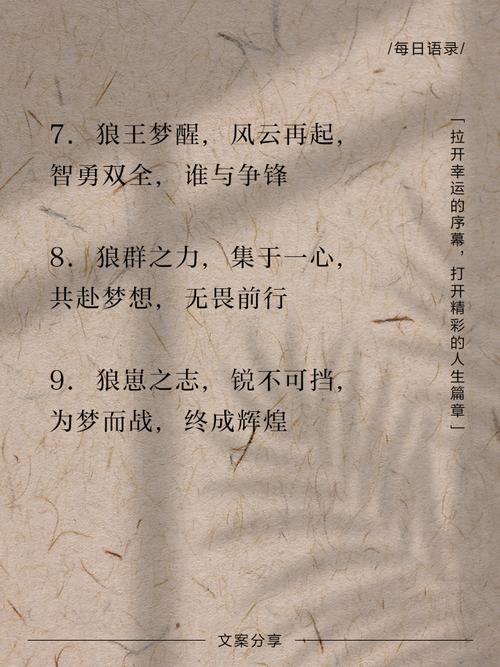 /每日语录/
7. 狼王梦醒，风云再起，
智勇双全，谁与争锋
8. 狼群之力，集于一心，
共赴梦想，无畏前行
9. 狼崽之志，锐不可挡，
为梦而战，终成辉煌
「拉开幸运的序幕，打开精彩的人生篇章」
文案分享